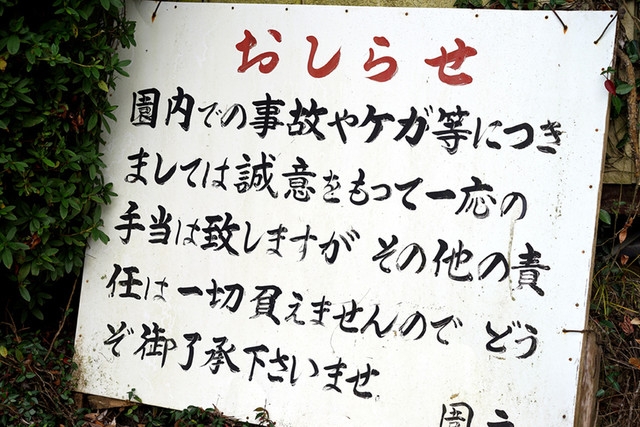 おしらせ
園内での事故やケガ等につき
ましては誠意をもって一応の
手当は致しますが その他の責
任は一切負えませんので どう
ぞ御了承下さいませ
園